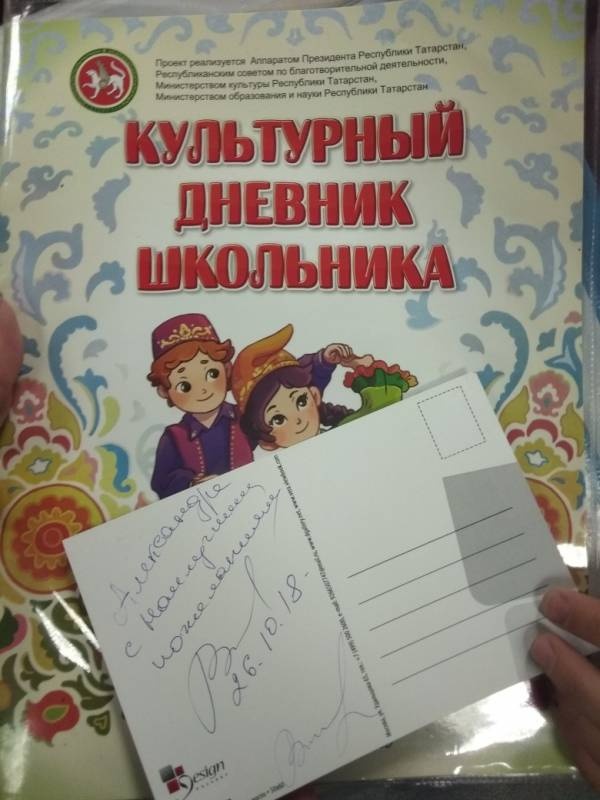 Проект реализуется Аппаратом Президента Республики Татарстан,
Республиканским советом по благотворительной деятельности,
Министерством культуры Республики Татарстан,
Министерством образования и науки Республики Татарстан
КУЛЬТУРНЫЙ
ДНЕВНИК
ШКОЛЬНИКА
Александре
с наилучшими
пожеланиями
26.10.18.
Design